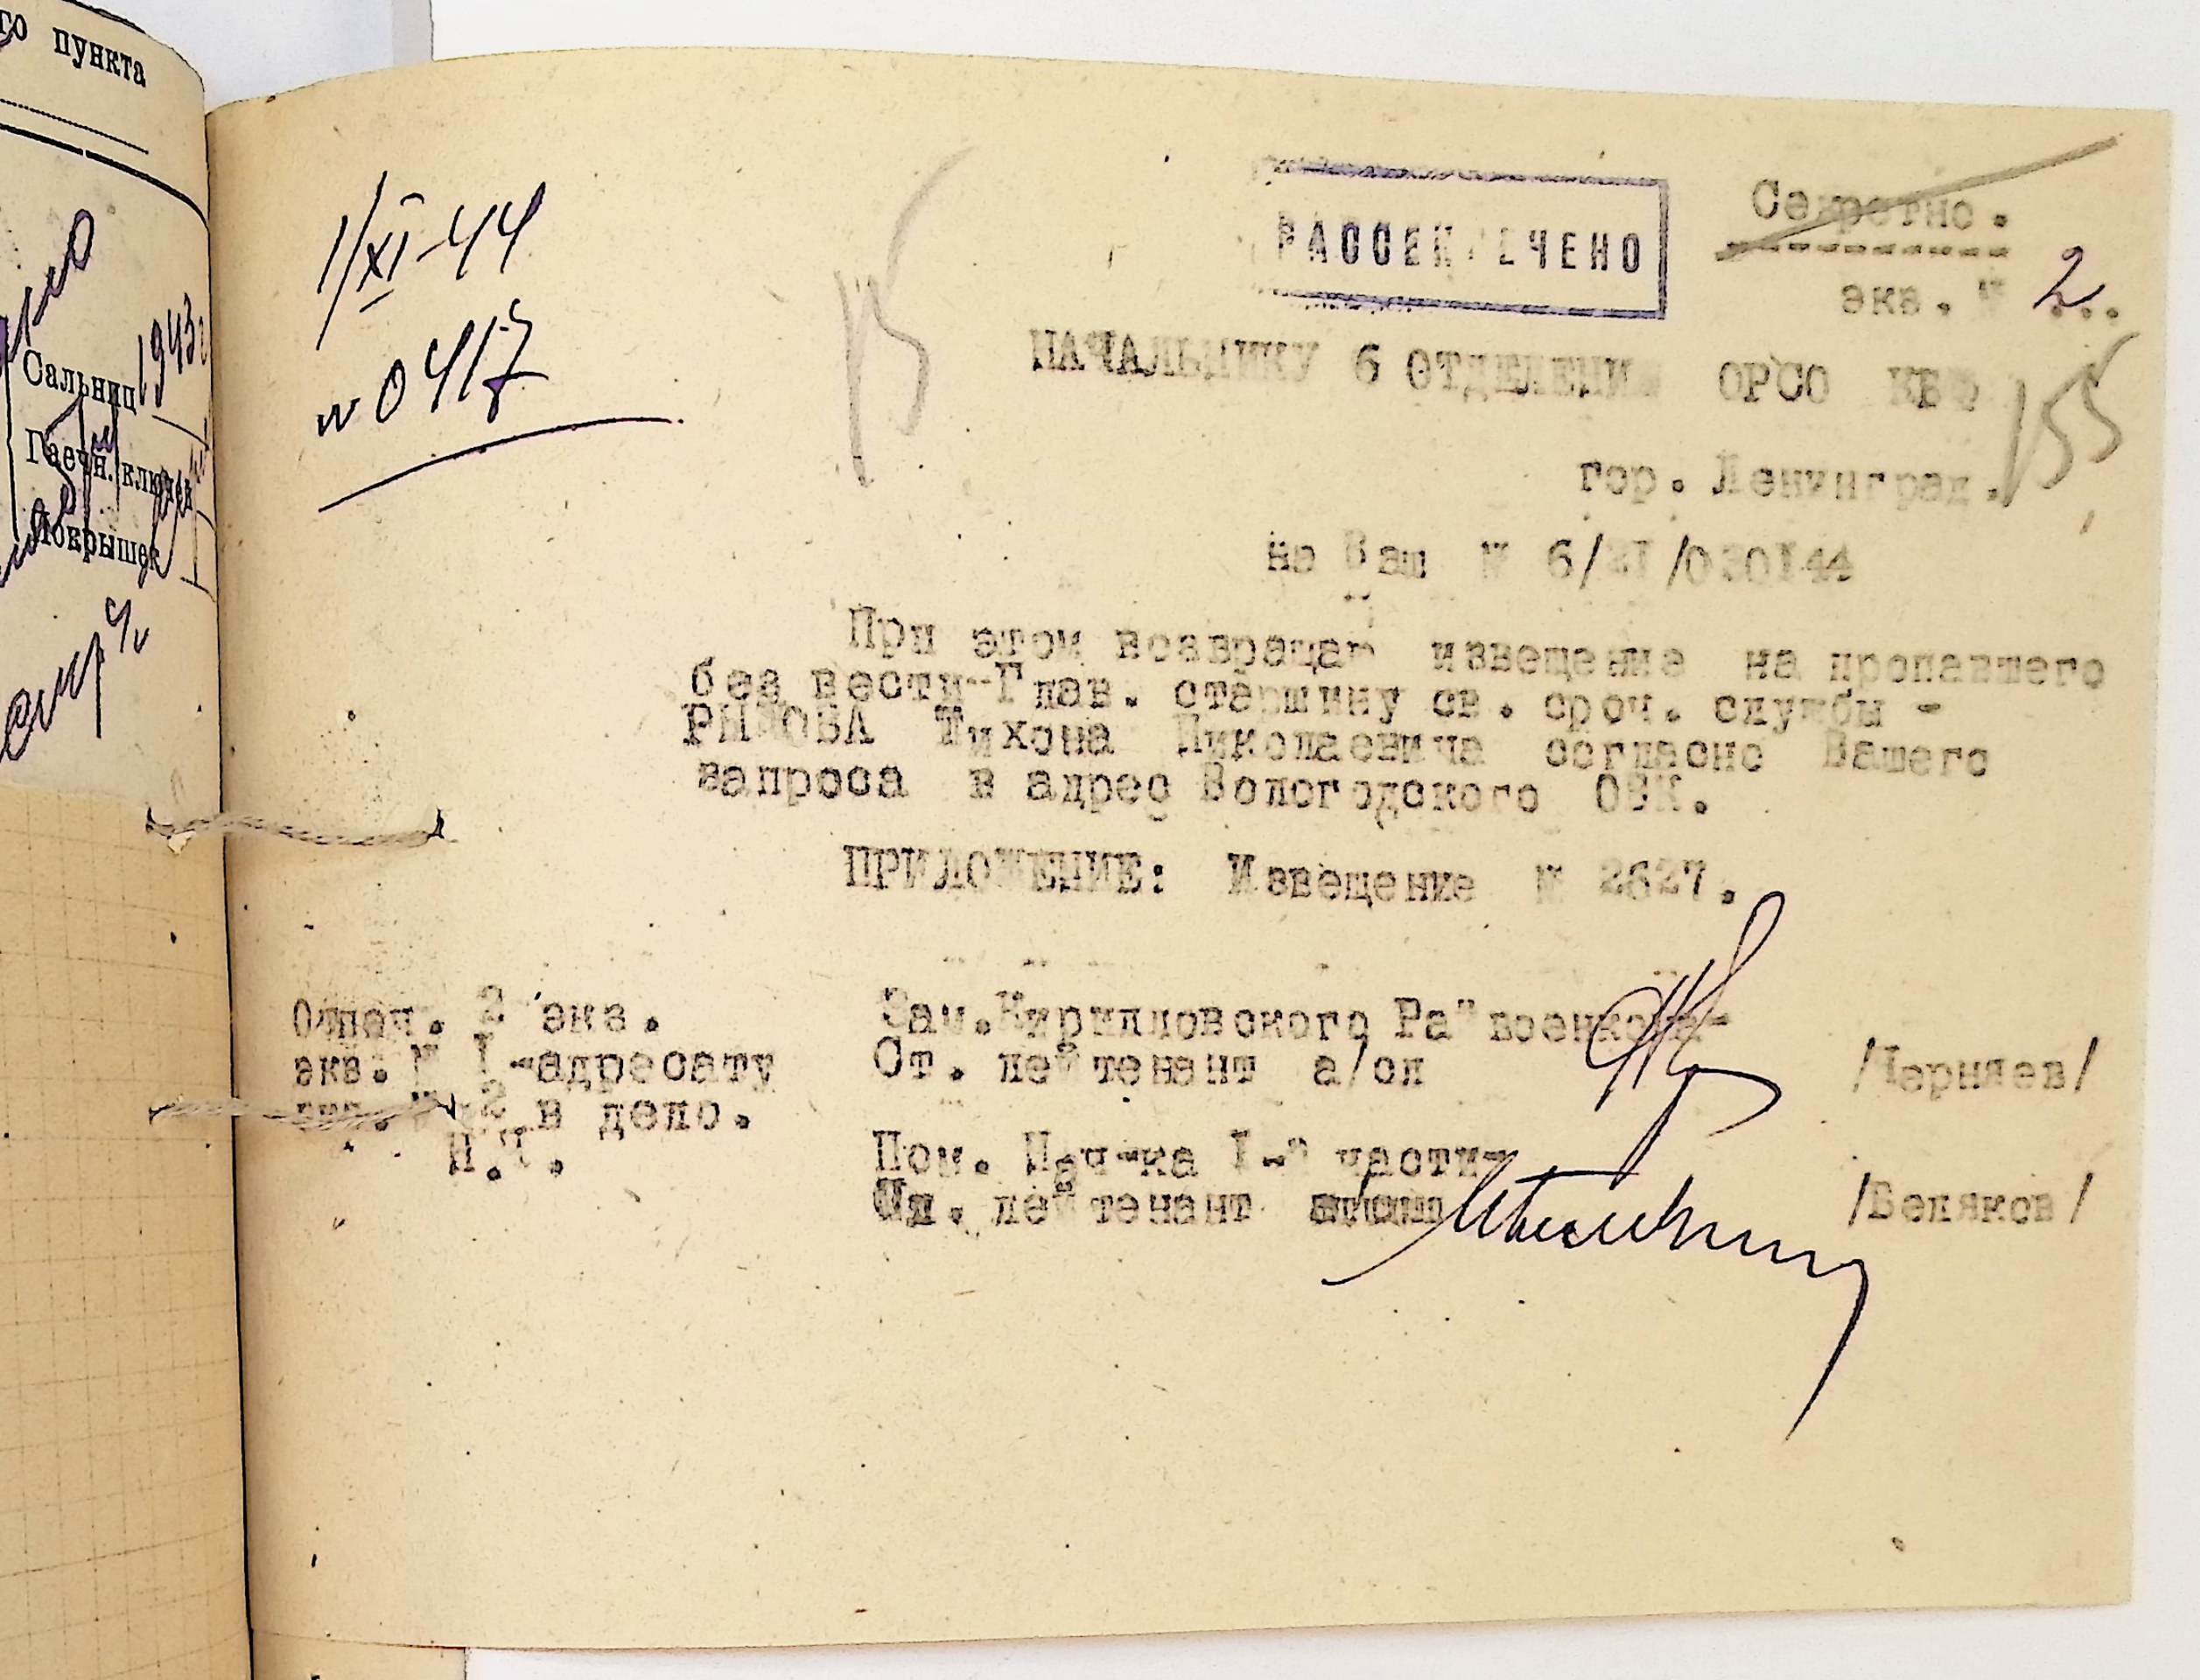 го пункта
1943г
Сальниц
Гаечн. ключей
Покрышек
1/XI-44
№ 0417
15
РАССЕКРЕЧЕНО
Секретно.
экз. № 2..
НАЧАЛЬНИКУ 6 ОТДЕЛЕНИЯ ОРСО КБФ
155
гор. Ленинград.
на Ваш № 6/21/030144
При этом возвращаю извещение на пропавшего
без вести-Глав. старшину св. сроч. службы -
Тихона Николаевича согласно Вашего
запроса в адрес Вологодского ОВК.
ПРИЛОЖЕНИЕ: Извещение № 2627.
Отпеч. 2 экз.
экз: № 1-адресату
экз. № 2 в дело.
Н.Ч.
Зам. Кирилловского Райвоенкома-
Ст. лейтенант а/сл
/Черняев/
Пом. Нач-ка I-й части-
Мл. лейтенант
/Беляков/